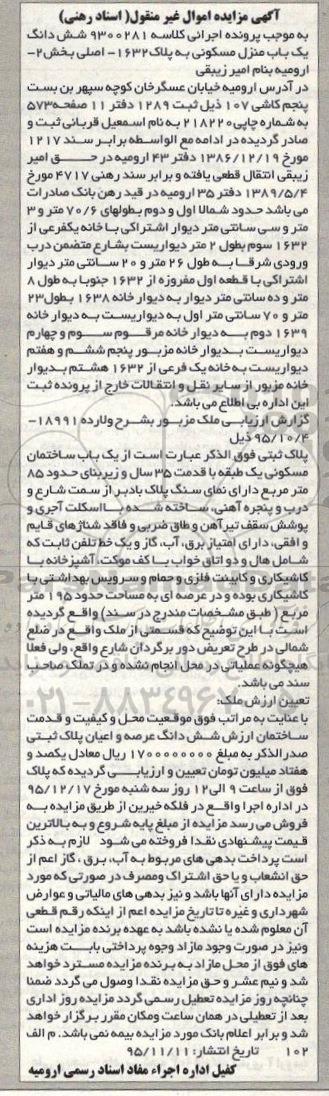 آگهی مزایده اموال غیر منقول( اسناد رهنی)
به موجب پرونده اجرائی کلاسه ۹۳۰۰۲۸۱ شش دانگ
یک باب منزل مسکونی به پلاک ۱۶۳۲- اصلی بخش ۲-
ارومیه بنام امیر زیبقی
در آدرس ارومیه خیابان عسگرخان کوچه سپهر بن بست
پنجم کاشی ۱۰۷ ذیل ثبت ۱۲۸۹ دفتر ۱۱ صفحه ۵۷۳
به شماره چاپی ۲۱۸۲۲۰ به نام اسمعیل قربانی ثبت و
صادر گردیده در ادامه مع الواسطه برابر سند ۱۲۱۷
مورخ ۱۳۸۶/۱۲/۱۹ دفتر ۴۳ ارومیه در حق امیر
زیبقی انتقال قطعی یافته و برابر سند رهنی ۴۷۱۷ مورخ
۱۳۸۹/۵/۴ دفتر ۳۵ ارومیه در قید رهن بانک صادرات
می باشد حدود شمالا اول و دوم بطولهای ۷۰/۶ متر و ۳
متر و سی سانتی متر دیوار اشتراکی با خانه یکفرعی از
۱۶۳۲ سوم بطول ۲ متر دیواریست بشارع متضمن درب
ورودی شرقا به طول ۲۶ متر و ۲۰ سانتی متر دیوار
اشتراکی با قطعه اول مفروزه از ۱۶۳۲ جنوبا به طول ۸
متر و ده سانتی متر دیوار به دیوار خانه ۱۶۳۸ بطول ۲۳
متر و ۷۰ سانتی متر اول به دیواریست به دیوار خانه
۱۶۳۹ دوم به دیوار خانه مرقوم سوم و چهارم
دیواریست بدیوار خانه مزبور پنجم ششم و هفتم
دیواریست به خانه یک فرعی از ۱۶۳۲ هشتم بدیوار
خانه مزبور از سایر نقل و انتقالات خارج از پرونده ثبت
این اداره بی اطلاع می باشد.
گزارش ارزیابی ملک مزبور بشرح ولارده ۱۸۹۹۱-
۹۵/۱۰/۴ ذیل
پلاک ثبتی فوق الذکر عبارت است از یک باب ساختمان
مسکونی یک طبقه با قدمت ۳۵ سال و زیربنای حدود ۸۵
متر مربع دارای نمای سنگ پلاک بادبر از سمت شارع و
درب و پنجره آهنی، ساخته شده با اسکلت آجری و
پوشش سقف تیرآهن و طاق ضربی و فاقد شناژهای قایم
و افقی، دارای امتیاز برق، آب، گاز و یک خط تلفن ثابت که
شامل هال و دو اتاق خواب با کف موکت، آشپزخانه با
کاشیکاری و کابینت فلزی و حمام و سرویس بهداشتی با
کاشیکاری بوده و در عرصه ای به مساحت حدود ۱۹۵ متر
مربع ( طبق مشخصات مندرج در سند) واقع گردیده
است با این توضیح که قسمتی از ملک واقع در ضلع
شمالی در طرح تعریض دور برگردان شارع واقع، ولی فعلا
هیچگونه عملیاتی در محل انجام نشده و در تملک صاحب
سند می باشد.
تعیین ارزش ملک:
با عنایت به مراتب فوق موقعیت محل و کیفیت و قدمت
ساختمان ارزش شش دانگ عرصه و اعیان پلاک ثبتی
صدرالذکر به مبلغ ۱۷۰۰۰۰۰۰۰۰ ریال معادل یکصد و
هفتاد میلیون تومان تعیین و ارزیابی گردیده که پلاک
فوق از ساعت ۹ الی ۱۲ روز سه شنبه مورخ ۹۵/۱۲/۱۷
در اداره اجرا واقع در فلکه خیرین از طریق مزایده به
فروش می رسد مزایده از مبلغ پایه شروع و به بالاترین
قیمت پیشنهادی نقدا فروخته می شود لازم به ذکر
است پرداخت بدهی های مربوط به آب، برق ، گاز اعم از
حق انشعاب و یا حق اشتراک و مصرف در صورتی که مورد
مزایده دارای آنها باشد و نیز بدهی های مالیاتی و عوارض
شهرداری و غیره تا تاریخ مزایده اعم از اینکه رقم قطعی
آن معلوم شده یا نشده باشد به عهده برنده مزایده است
ونیز در صورت وجود مازاد وجوه پرداختی بابت هزینه
های فوق از محل مازاد به برنده مزایده مسترد خواهد
شد و نیم عشر و حق مزایده نقدا وصول می گردد ضمنا
چنانچه روز مزایده تعطیل رسمی گردد مزایده روز اداری
بعد از تعطیلی در همان ساعت ومکان مقرر برگزار خواهد
شد و برابر اعلام بانک مورد مزایده بیمه نمی باشد. م الف
۱۰۲ تاریخ انتشار: ۹۵/۱۱/۱۱
کفیل اداره اجراء مفاد اسناد رسمی ارومیه
۰۲۱-۸۸۳۴۹۶۷۰